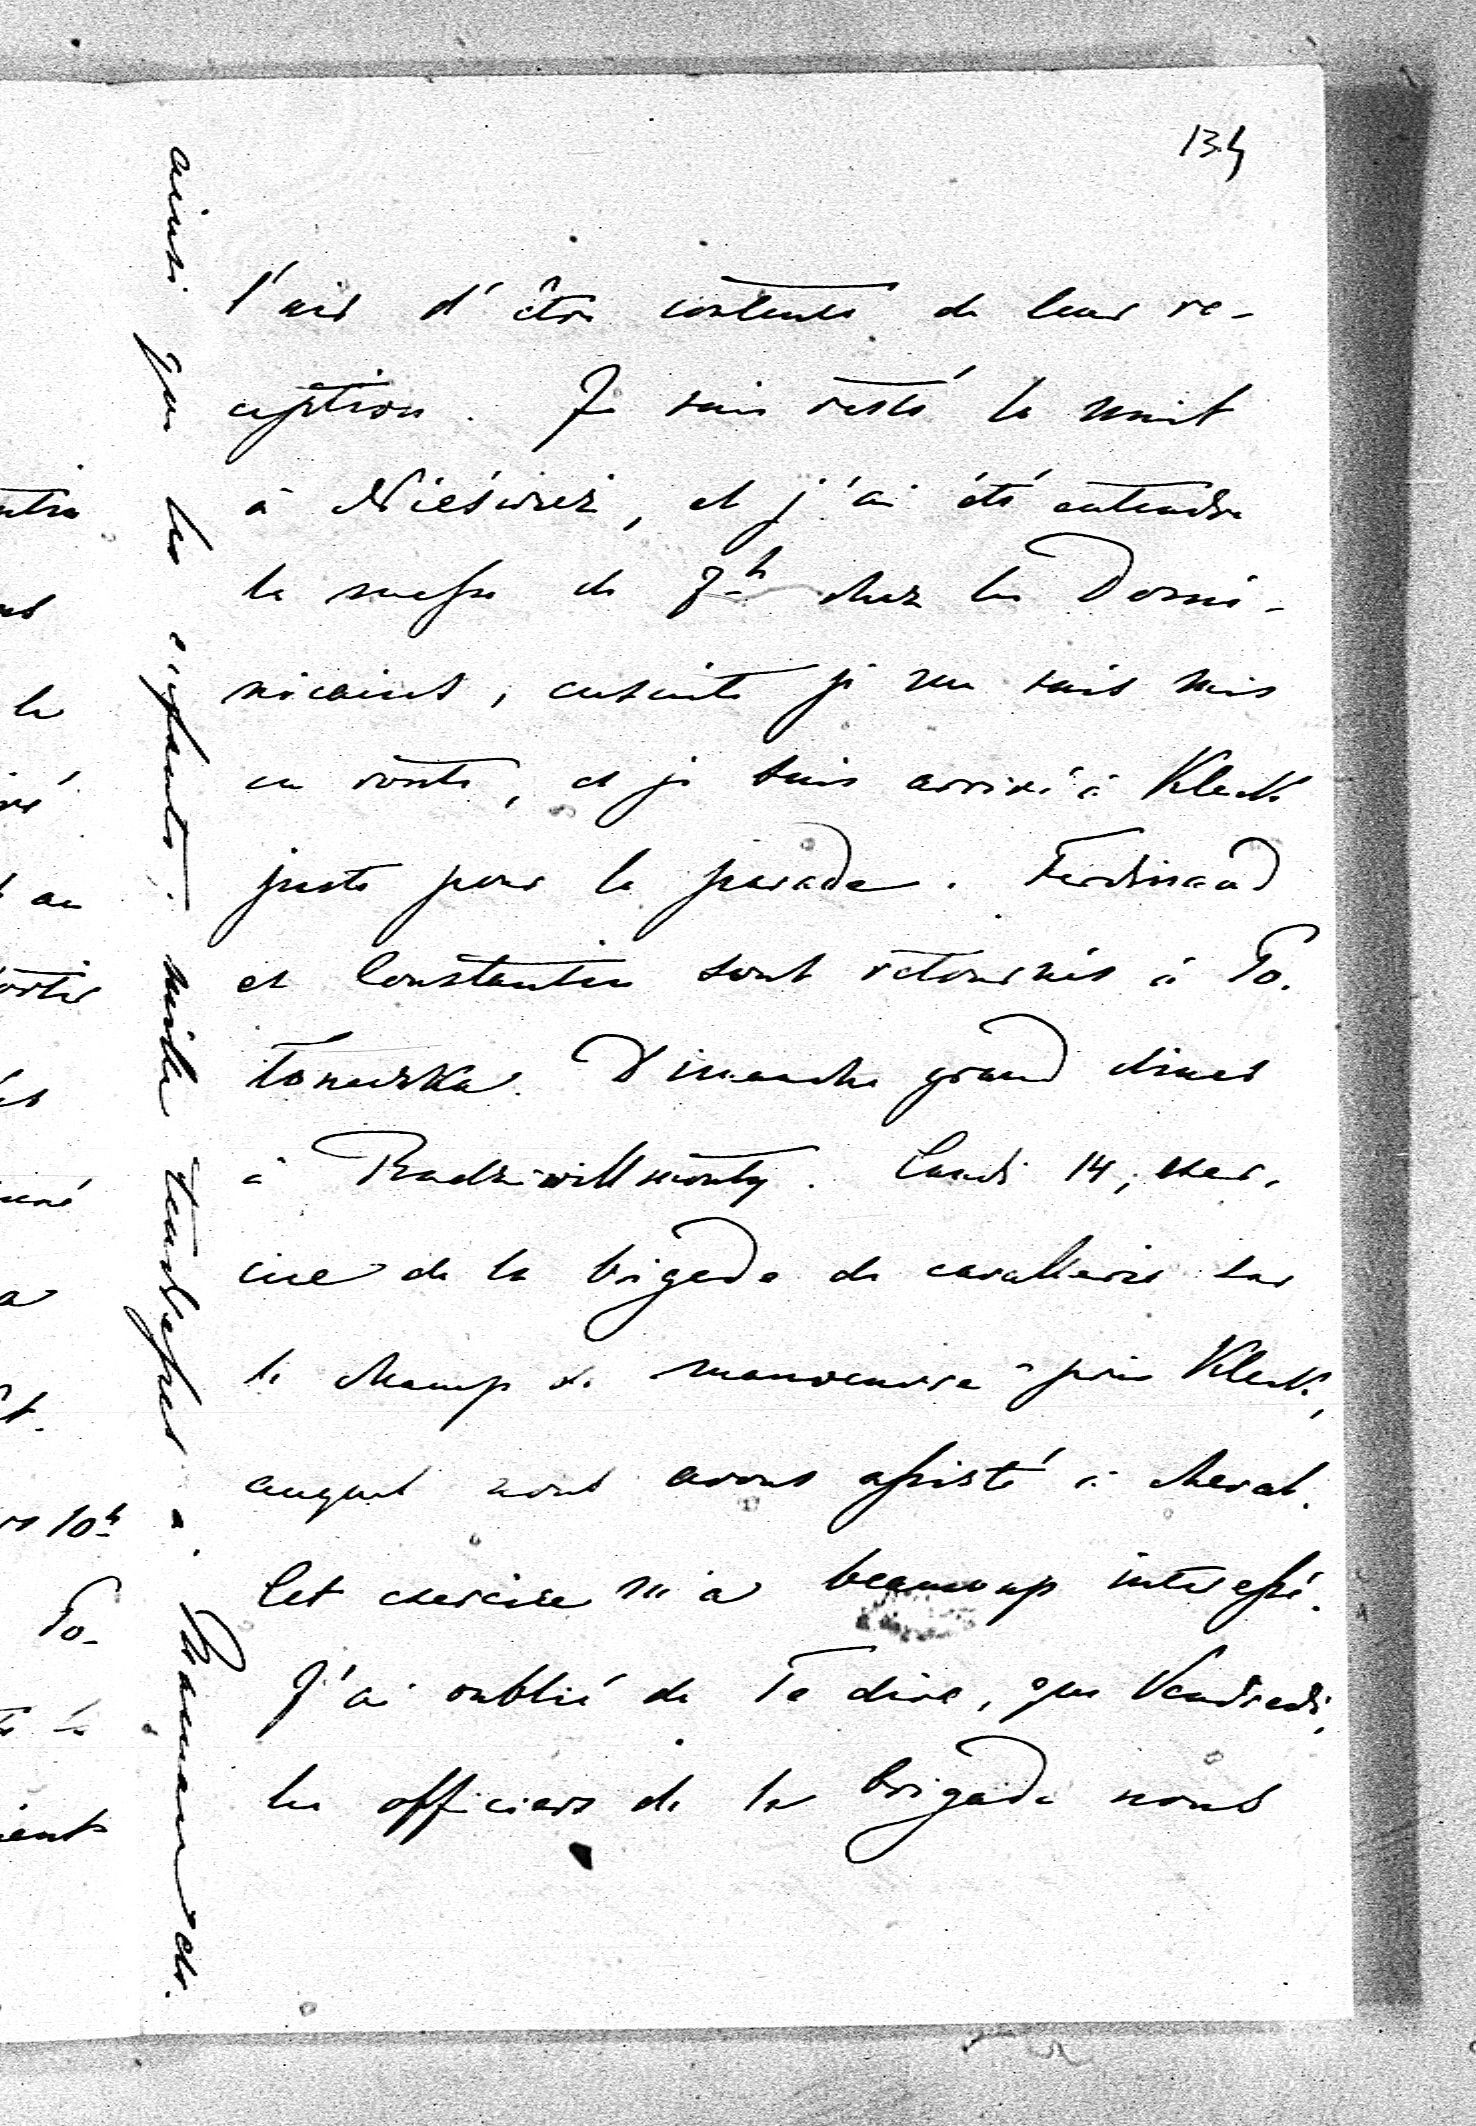 134
l'air d'être contents de leur re-
ception. Je suis resté la nuit
à Nieśwież, et j'ai été entendre
la messe de 7h chez les Domi-
nicains, ensuite je me suis mis
en route, et je suis arrivé à Kleck
juste pour la parade. Ferdinand
et Constantin sont retournés à Po-
tonewka. Dimanche grand diner
à Radziwillmonty. Lundi 14, exer-
cice de la brigade de cavallerie sur
le champ de manoeuvre près Kleck,
auquel nous avons assisté à cheval.
Cet exercice m'a beaucoup interessé.
J'ai oublié de Te dire, que Vendredi,
les officiers de la brigade nous
ainsi que les enfants; mille tendresses à Maman etc.
ntre
le
au
ortir
a
10h
Po-